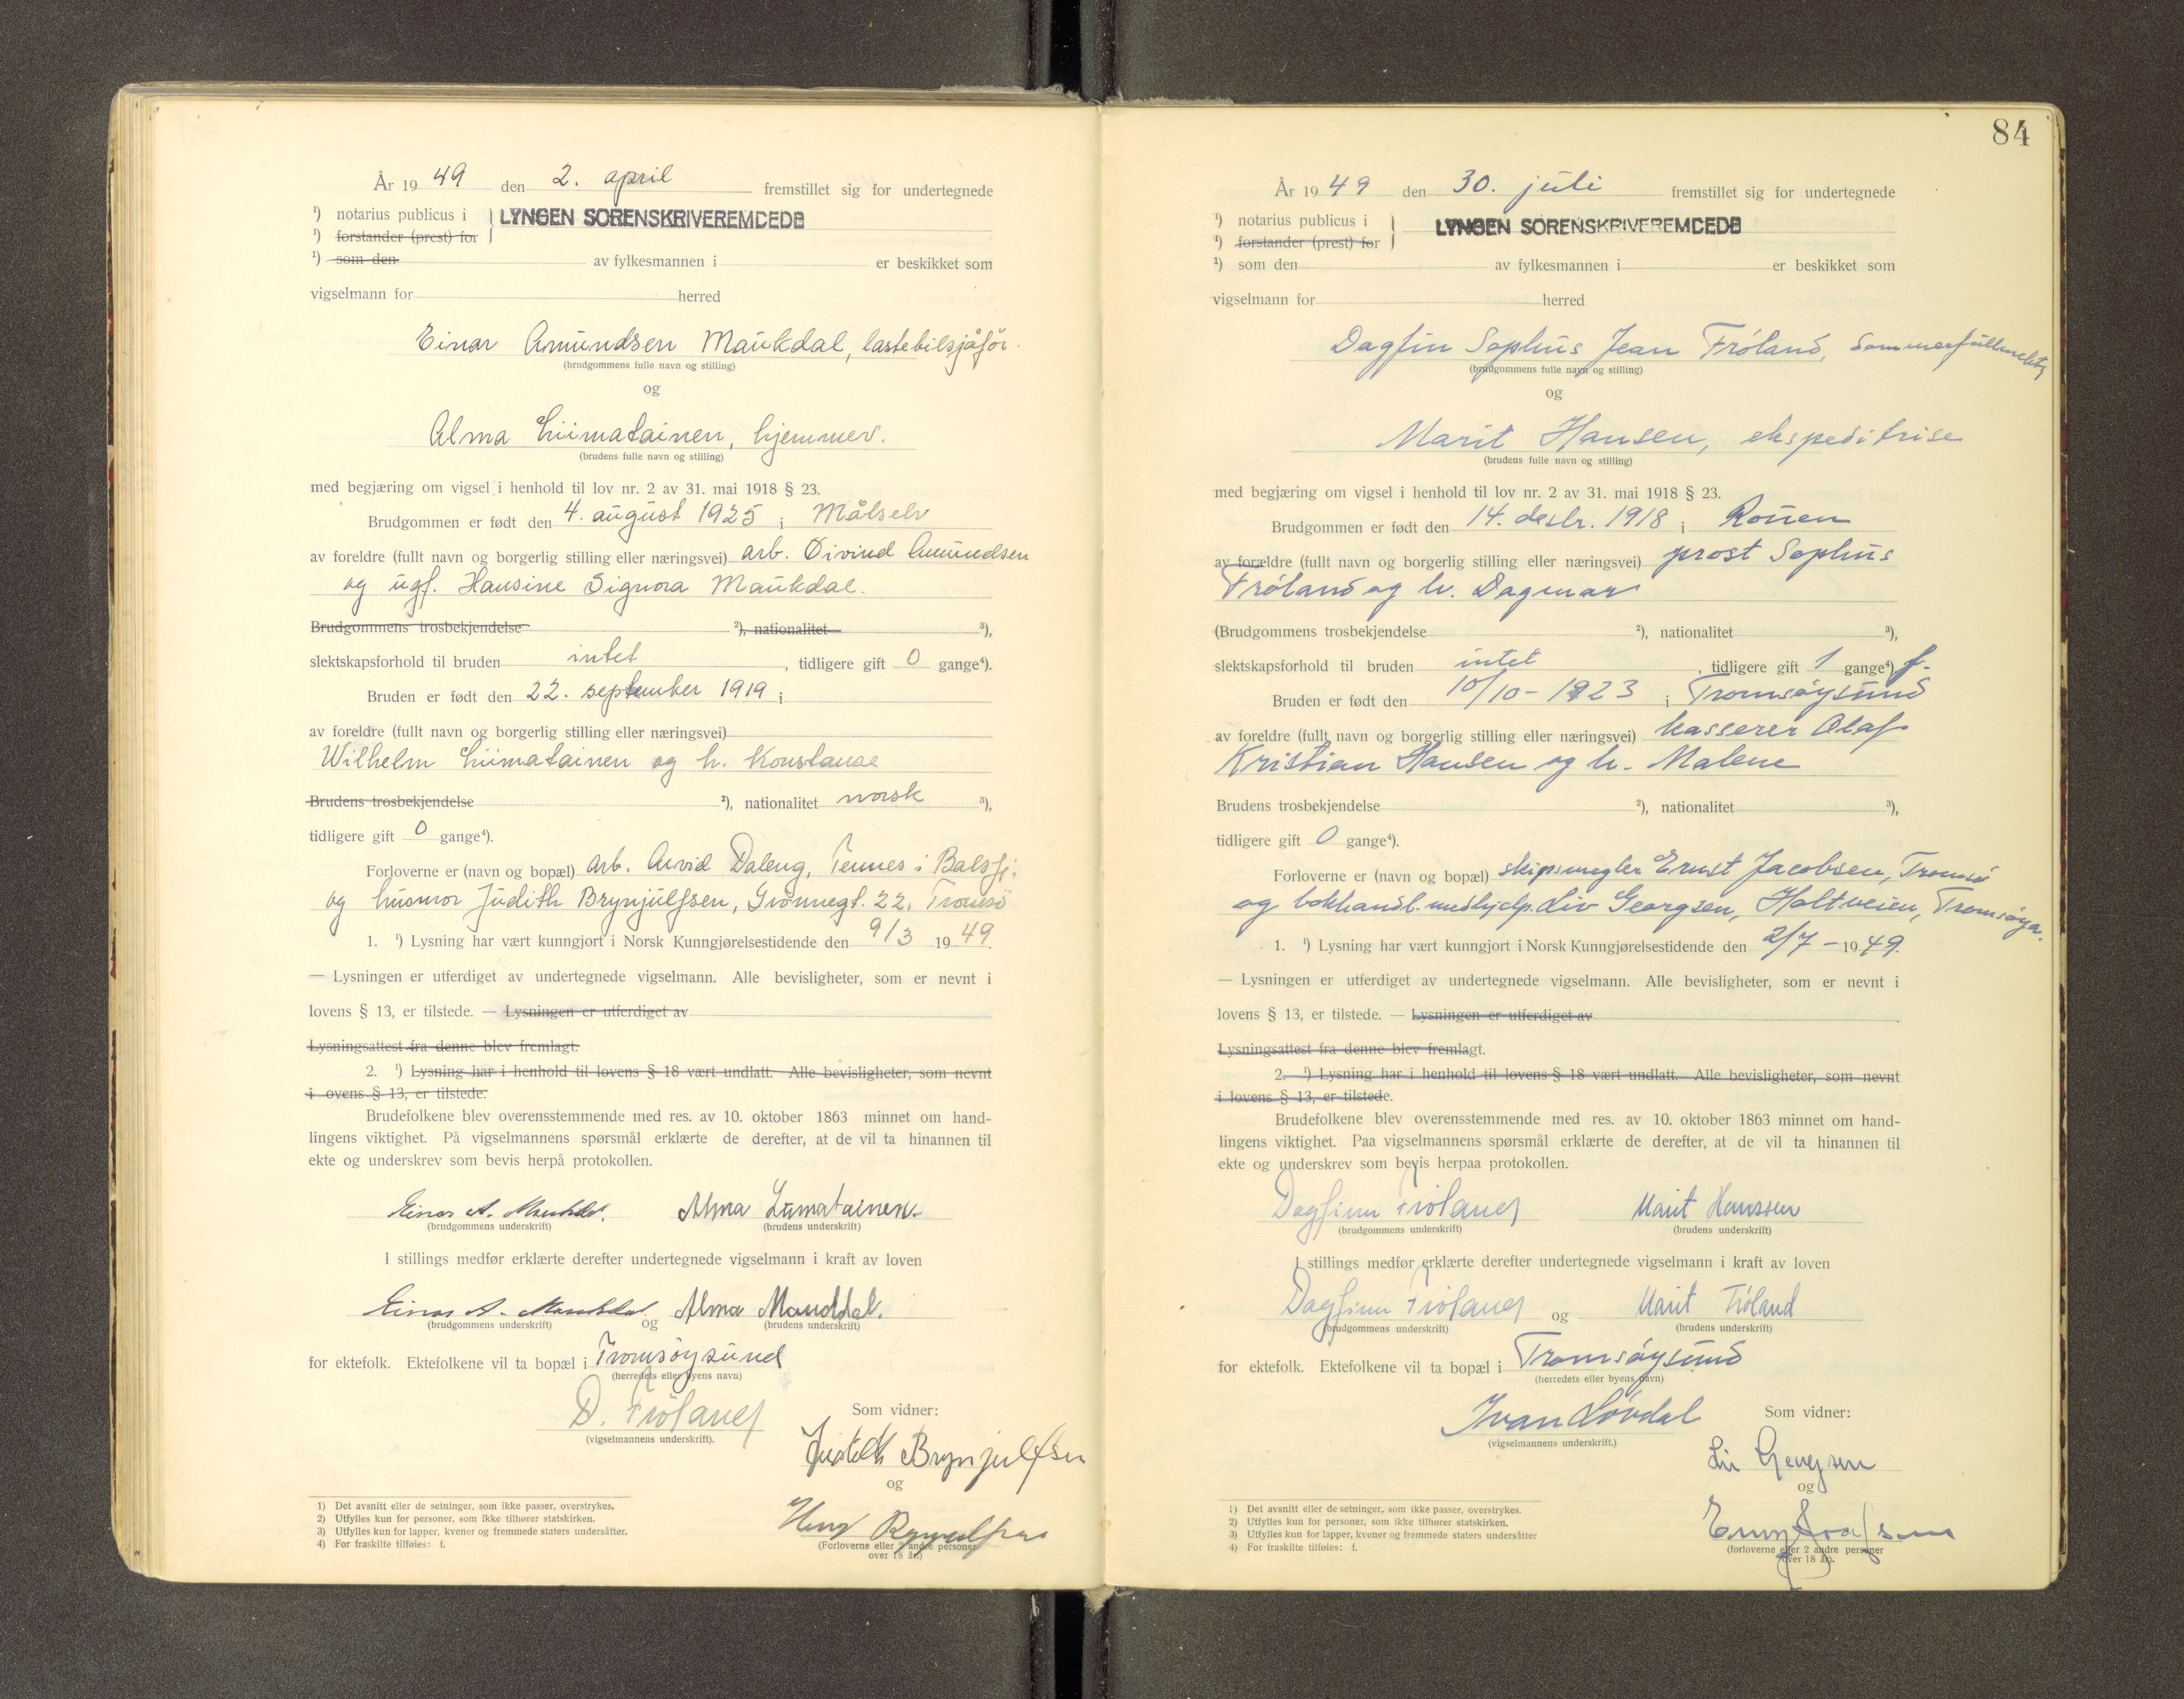 År 19 49 den 2. april fremstillet sig for undertegnede
¹) notarius publicus i } LYNGEN SORENSKRIVEREMBEDE
¹) forstander (prest) for
¹) som den av fylkesmannen i er beskikket som
vigselmann for herred
Einar Amundsen Maukdal, lastebilsjåfør.
(brudgommens fulle navn og stilling)
og
Alma Liimatainen, hjemmev.
(brudens fulle navn og stilling)
med begjæring om vigsel i henhold til lov nr. 2 av 31. mai 1918 § 23.
Brudgommen er født den 4. august 1925 i Målselv
av foreldre (fullt navn og borgerlig stilling eller næringsvei) arb. Øivind Amundsen
og ugf. Hansine Signora Maukdal.
Brudgommens trosbekjendelse ²), nationalitet ³),
slektskapsforhold til bruden intet, tidligere gift 0 gange⁴).
Bruden er født den 22. september 1919 i
av foreldre (fullt navn og borgerlig stilling eller næringsvei)
Wilhelm Liimatainen og h. Konstanse
Brudens trosbekjendelse ²), nationalitet norsk ³),
tidligere gift 0 gange⁴).
Forloverne er (navn og bopæl) arb. Arvid Daleng, Tennes i Balsfj.
og husmor Judith Brynjulfsen, Grønnegt. 22, Tromsø
1. ¹) Lysning har vært kunngjort i Norsk Kunngjørelsestidende den 9/3 1949.
— Lysningen er utferdiget av undertegnede vigselmann. Alle bevisligheter, som er nevnt i
lovens § 13, er tilstede. — Lysningen er utferdiget av
Lysningsattest fra denne blev fremlagt.
2. ¹) Lysning har i henhold til lovens § 18 vært undlatt. Alle bevisligheter, som nevnt
i ovens § 13, er tilstede.
Brudefolkene blev overensstemmende med res. av 10. oktober 1863 minnet om hand-
lingens viktighet. På vigselmannens spørsmål erklærte de derefter, at de vil ta hinannen til
ekte og underskrev som bevis herpå protokollen.
Einar A. Maukdal. Alma Liimatainen.
(brudgommens underskrift) (brudens underskrift)
I stillings medfør erklærte derefter undertegnede vigselmann i kraft av loven
Einar A. Maukdal og Alma Mauddal.
(brudgommens underskrift) (brudens underskrift)
for ektefolk. Ektefolkene vil ta bopæl i Tromsøysund
(herredets eller byens navn)
D. Frøland
(vigselmannens underskrift).
Som vidner:
Judith Brynjulfsen
og
(Forloverne eller 2 andre personer
over 18 år)
1) Det avsnitt eller de setninger, som ikke passer, overstrykes.
2) Utfylles kun for personer, som ikke tilhører statskirken.
3) Utfylles kun for lapper, kvener og fremmede staters undersåtter.
4) For fraskilte tilføies: f.
84
År 19 49 den 30. juli fremstillet sig for undertegnede
¹) notarius publicus i } LYNGEN SORENSKRIVEREMBEDE
¹) forstander (prest) for
¹) som den av fylkesmannen i er beskikket som
vigselmann for herred
Dagfin Sophus Jean Frøland, dommerfullmektig
(brudgommens fulle navn og stilling)
og
Marit Hansen, ekspeditrise
(brudens fulle navn og stilling)
med begjæring om vigsel i henhold til lov nr. 2 av 31. mai 1918 § 23.
Brudgommen er født den 14. desbr. 1918 i Rouen
av forældre (fullt navn og borgerlig stilling eller næringsvei) prost Sophus
Frøland og h. Dagmar
(Brudgommens trosbekjendelse ²), nationalitet ³),
slektskapsforhold til bruden intet, tidligere gift 1 gange⁴) f.
Bruden er født den 10/10-1923 i Tromsøysund
av foreldre (fullt navn og borgerlig stilling eller næringsvei) kasserer Olaf
Kristian Hansen og h. Malene
Brudens trosbekjendelse ²), nationalitet ³),
tidligere gift 0 gange⁴).
Forloverne er (navn og bopæl) skipsmegler Ernst Jacobsen, Tromsø
og bokhandl. medhjelp. Liv Georgsen, Holtveien, Tromsøya.
1. ¹) Lysning har vært kunngjort i Norsk Kunngjørelsestidende den 2/7 - 1949.
— Lysningen er utferdiget av undertegnede vigselmann. Alle bevisligheter, som er nevnt i
lovens § 13, er tilstede. — Lysningen er utferdiget av .
Lysningsattest fra denne blev fremlagt.
2. ¹) Lysning har i henhold til lovens § 18 vært undlatt. Alle bevisligheter, som nevnt
i lovens § 13, er tilstede.
Brudefolkene blev overensstemmende med res. av 10. oktober 1863 minnet om hand-
lingens viktighet. Paa vigselmannens spørsmål erklærte de derefter, at de vil ta hinannen til
ekte og underskrev som bevis herpaa protokollen.
Dagfinn Frøland Marit Hanssen
(brudgommens underskrift) (brudens underskrift)
I stillings medfør erklærte derefter undertegnede vigselmann i kraft av loven
Dagfinn Frøland og Marit Frøland
(brudgommens underskrift) (brudens underskrift)
for ektefolk. Ektefolkene vil ta bopæl i Tromsøysund
(herredets eller byens navn)
Ivan Løvdal
(vigselmannens underskrift.)
Som vidner:
Liv Georgsen
og
(forloverne eller 2 andre personer
over 18 år).
1) Det avsnitt eller de setninger, som ikke passer, overstrykes.
2) Utfylles kun for personer, som ikke tilhører statskirken.
3) Utfylles kun for lapper, kvener og fremmede staters undersåtter
4) For fraskilte tilføies: f.